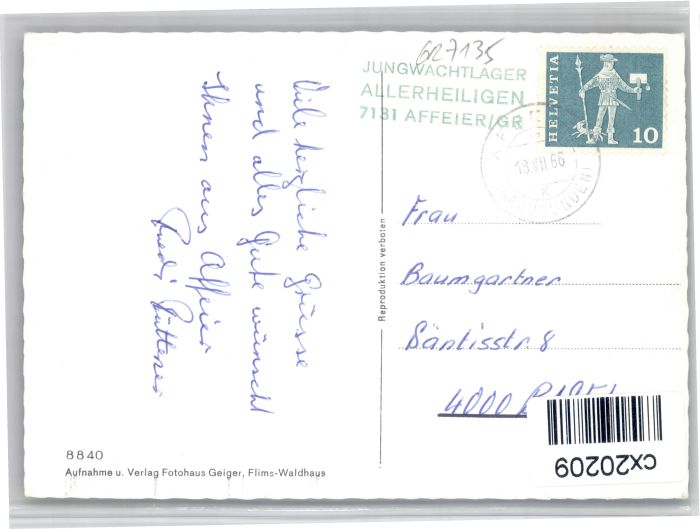 GR7135
JUNGWACHTLAGER
ALLERHEILIGEN
7131 AFFEIER/GR
HELVETIA
10
18.VII.66
Viele herzliche Grüsse
und alles Gute wünscht
Ihnen aus Affeier
Fredi
Reproduktion verboten
Frau
Baumgartner
Säntisstr. 8
4000
8840
Aufnahme u. Verlag Fotohaus Geiger, Flims-Waldhaus
CX20209